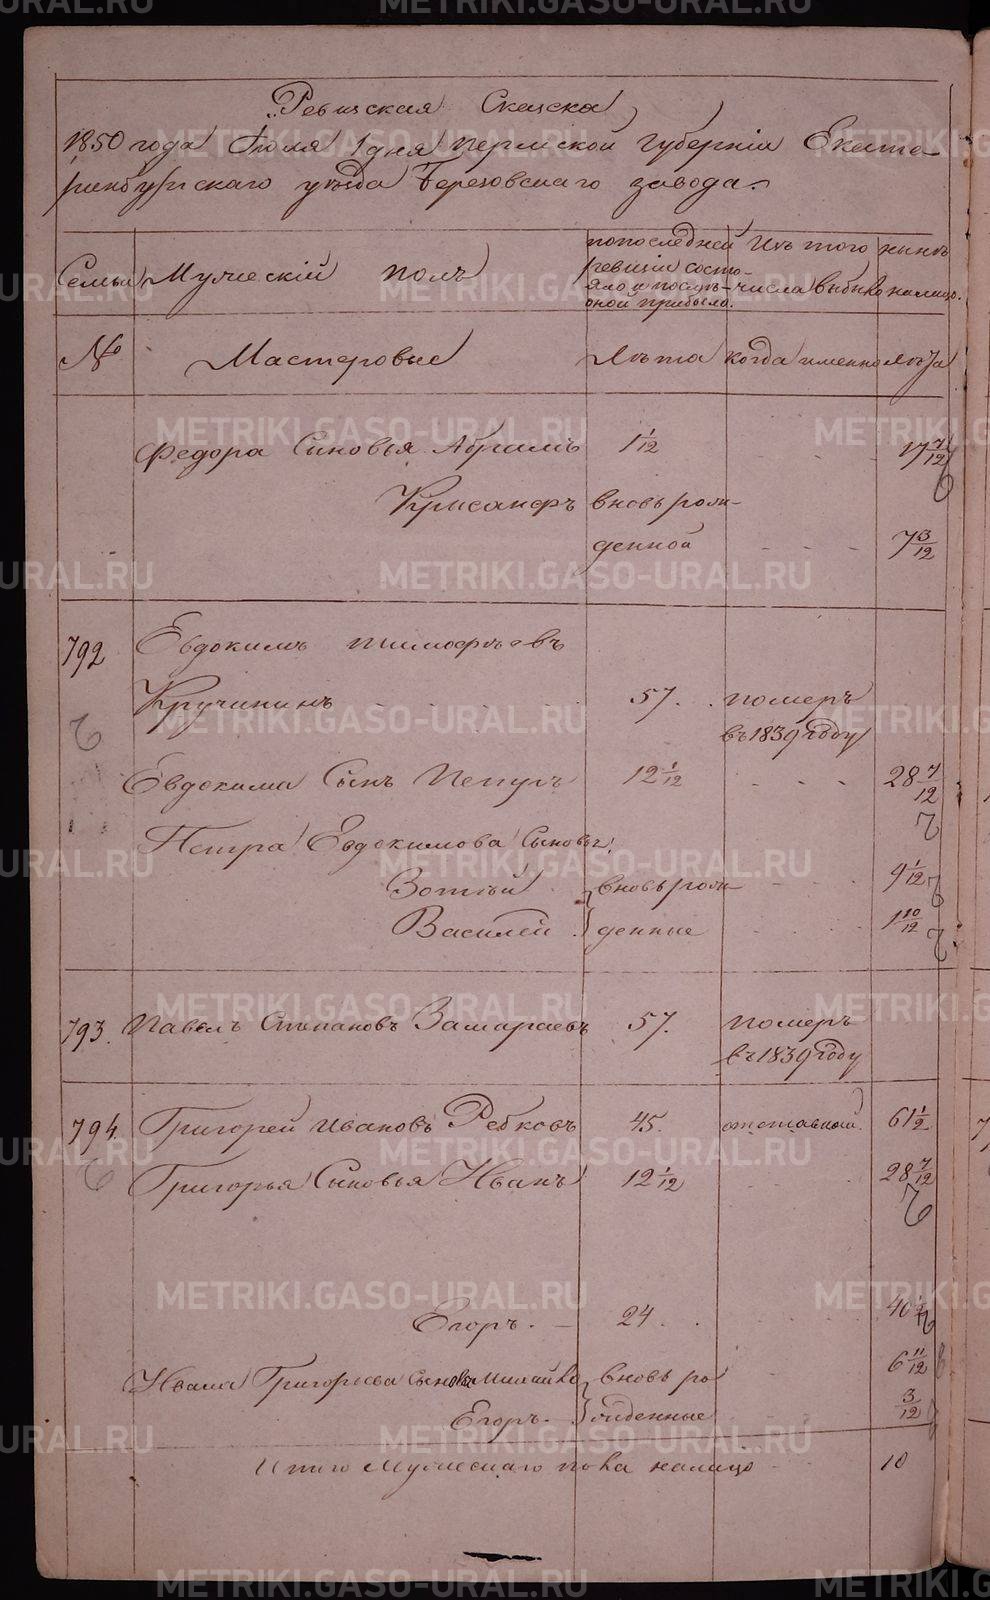 METRIKI.GASO-URAL.RU
Ревизская Скаска
1850 года Июля 1 дня Пермской Губерніи Екате-
ринбургскаго уѣзда Березовскаго завода.
Семьи Мужескій полъ по последней ревизіи состо-яло и послѣ оной прибыло. Изъ того числа выбыло нынѣ на лицо.
№ Мастеровые Лѣта когда именно Лѣта
Федора Сыновья Абрамъ 1 1/12 17 7/12
Крисанфъ вновь рож-
денной 7 3/12
792 Евдокимъ Тимофѣевъ
Кручининъ 57. померъ
въ 1839 году
Евдокима Сынъ Петръ 12 1/12 28 7/12
Петра Евдокимова Сыновья
Зотѣй вновь рож- 9 1/12
Василей денные 1 10/12
793. Павелъ Степановъ 57. померъ
въ 1839 году
794. Григорей Ивановъ Ребковъ 45. отставной 61 1/2
Григорья Сыновья Иванъ 12 1/12 28 7/12
Егоръ. 24. 40 1/2
Ивана Григорьева Сыновья Михайло вновь ро 6 11/12
Егоръ. жденные 3/12
Итого Мужескаго пола налицо 10